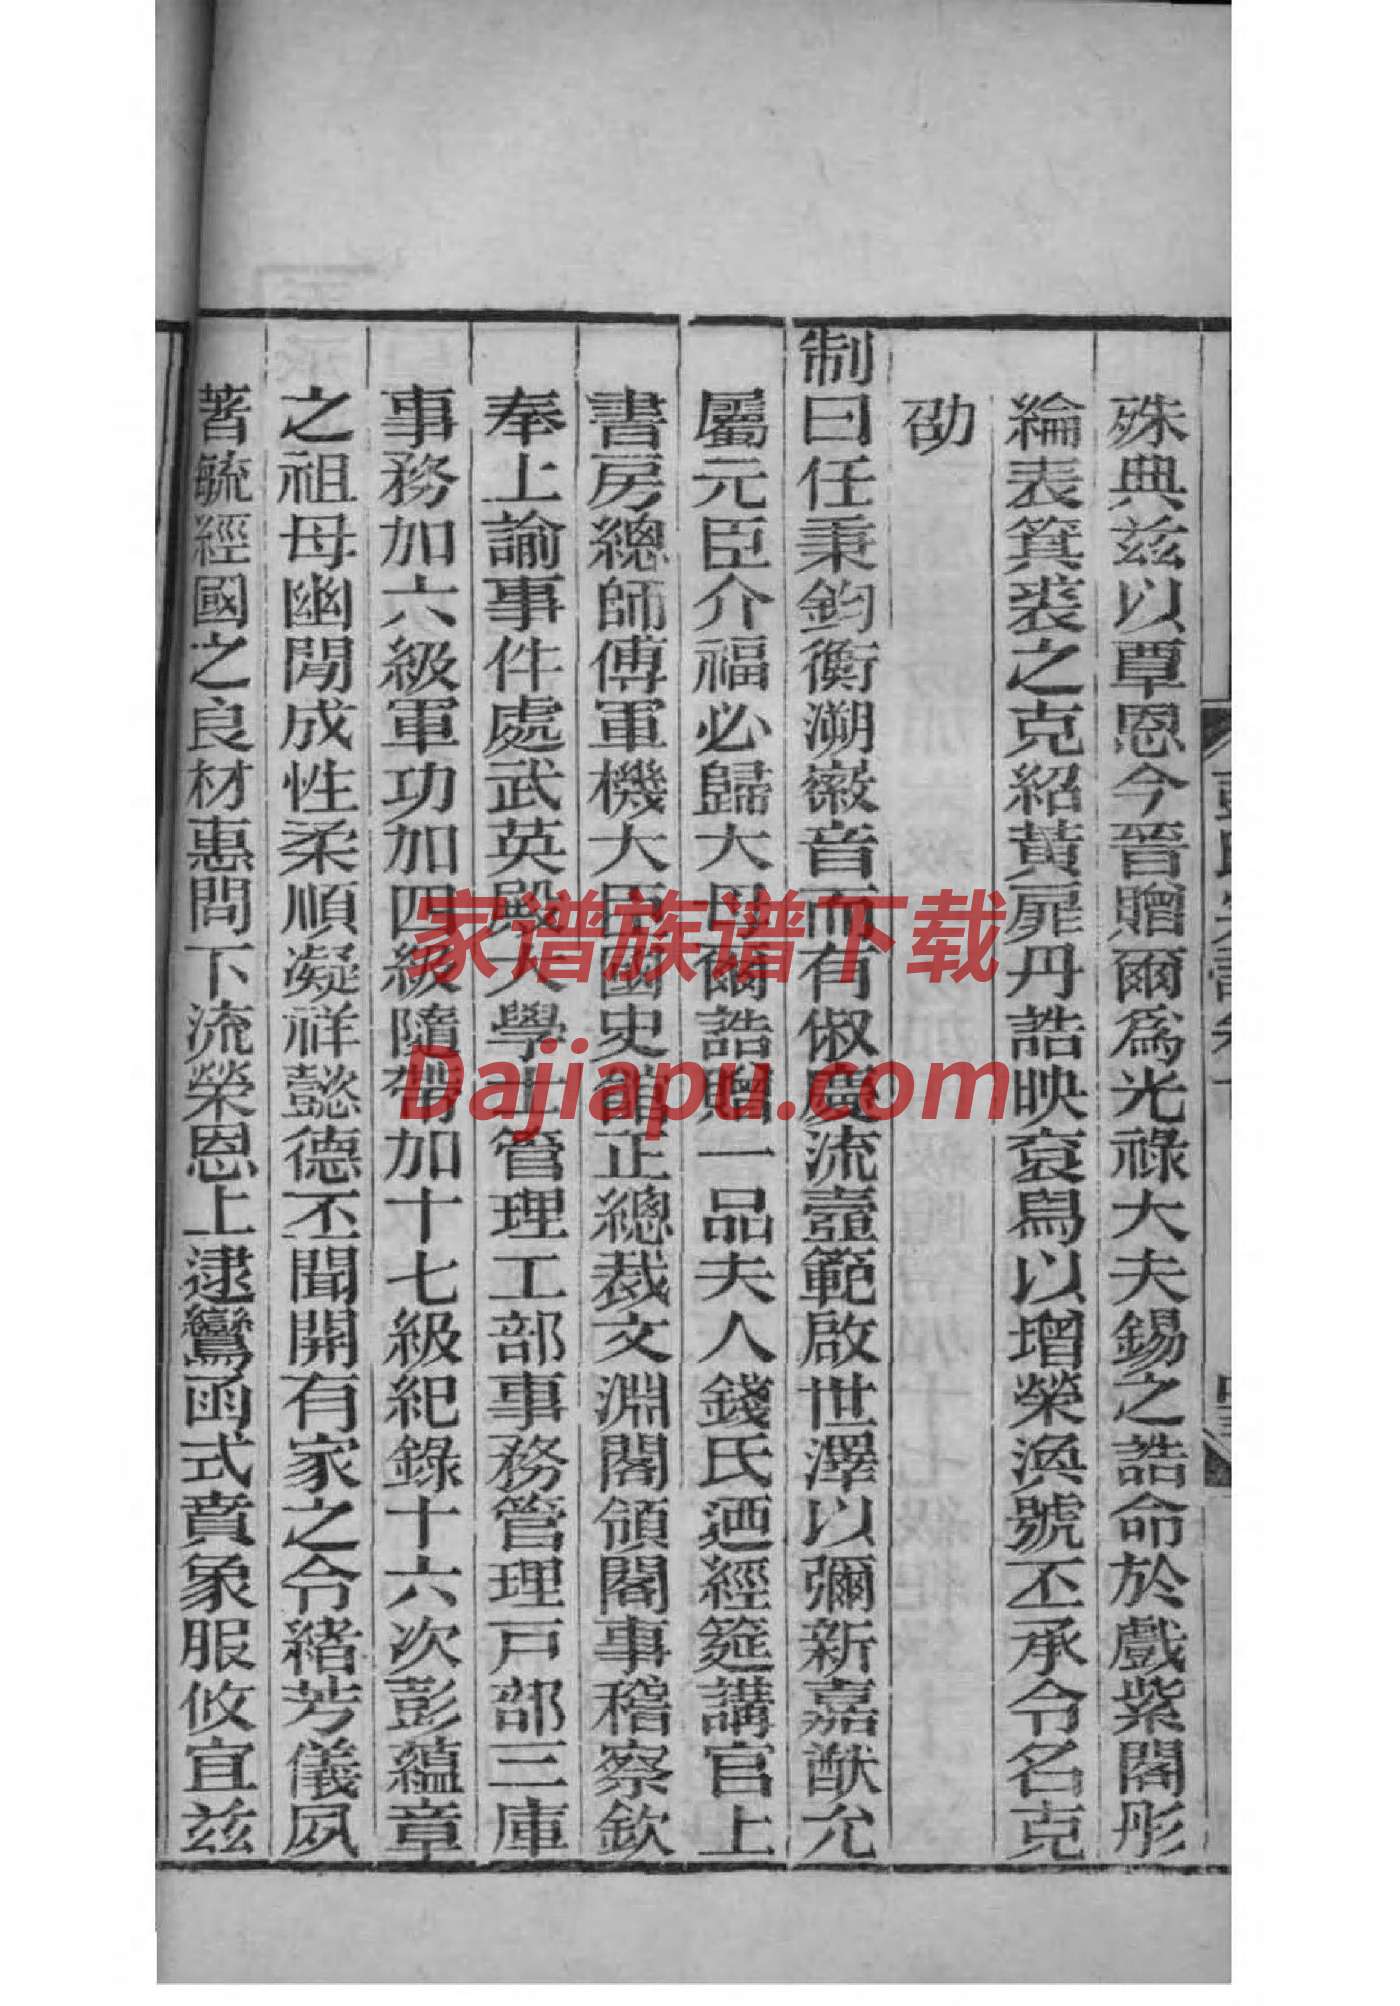 殊典茲以覃恩今晉贈爾爲光祿大夫錫之誥命於戲紫閣彤
綸表箕裘之克紹黃扉丹誥映袞舄以增榮渙號丕承令名克
劭
制曰任秉鈞衡溯徽音而有俶慶流壼範啟世澤以彌新嘉猷允
屬元臣介福必歸大母爾誥贈一品夫人錢氏迺經筵講官上
書房總師傅軍機大臣國史館正總裁文淵閣領閣事稽察欽
奉上諭事件處武英殿大學士管理工部事務管理戸部三庫
事務加六級軍功加四級隨帶加十七級紀錄十六次彭蘊章
之祖母幽閒成性柔順凝祥懿德丕聞開有家之令緒芳儀夙
著毓經國之良材惠問下流榮恩上逮鸞函式賁象服攸宜茲
家谱族谱下载
Dajiapu.com